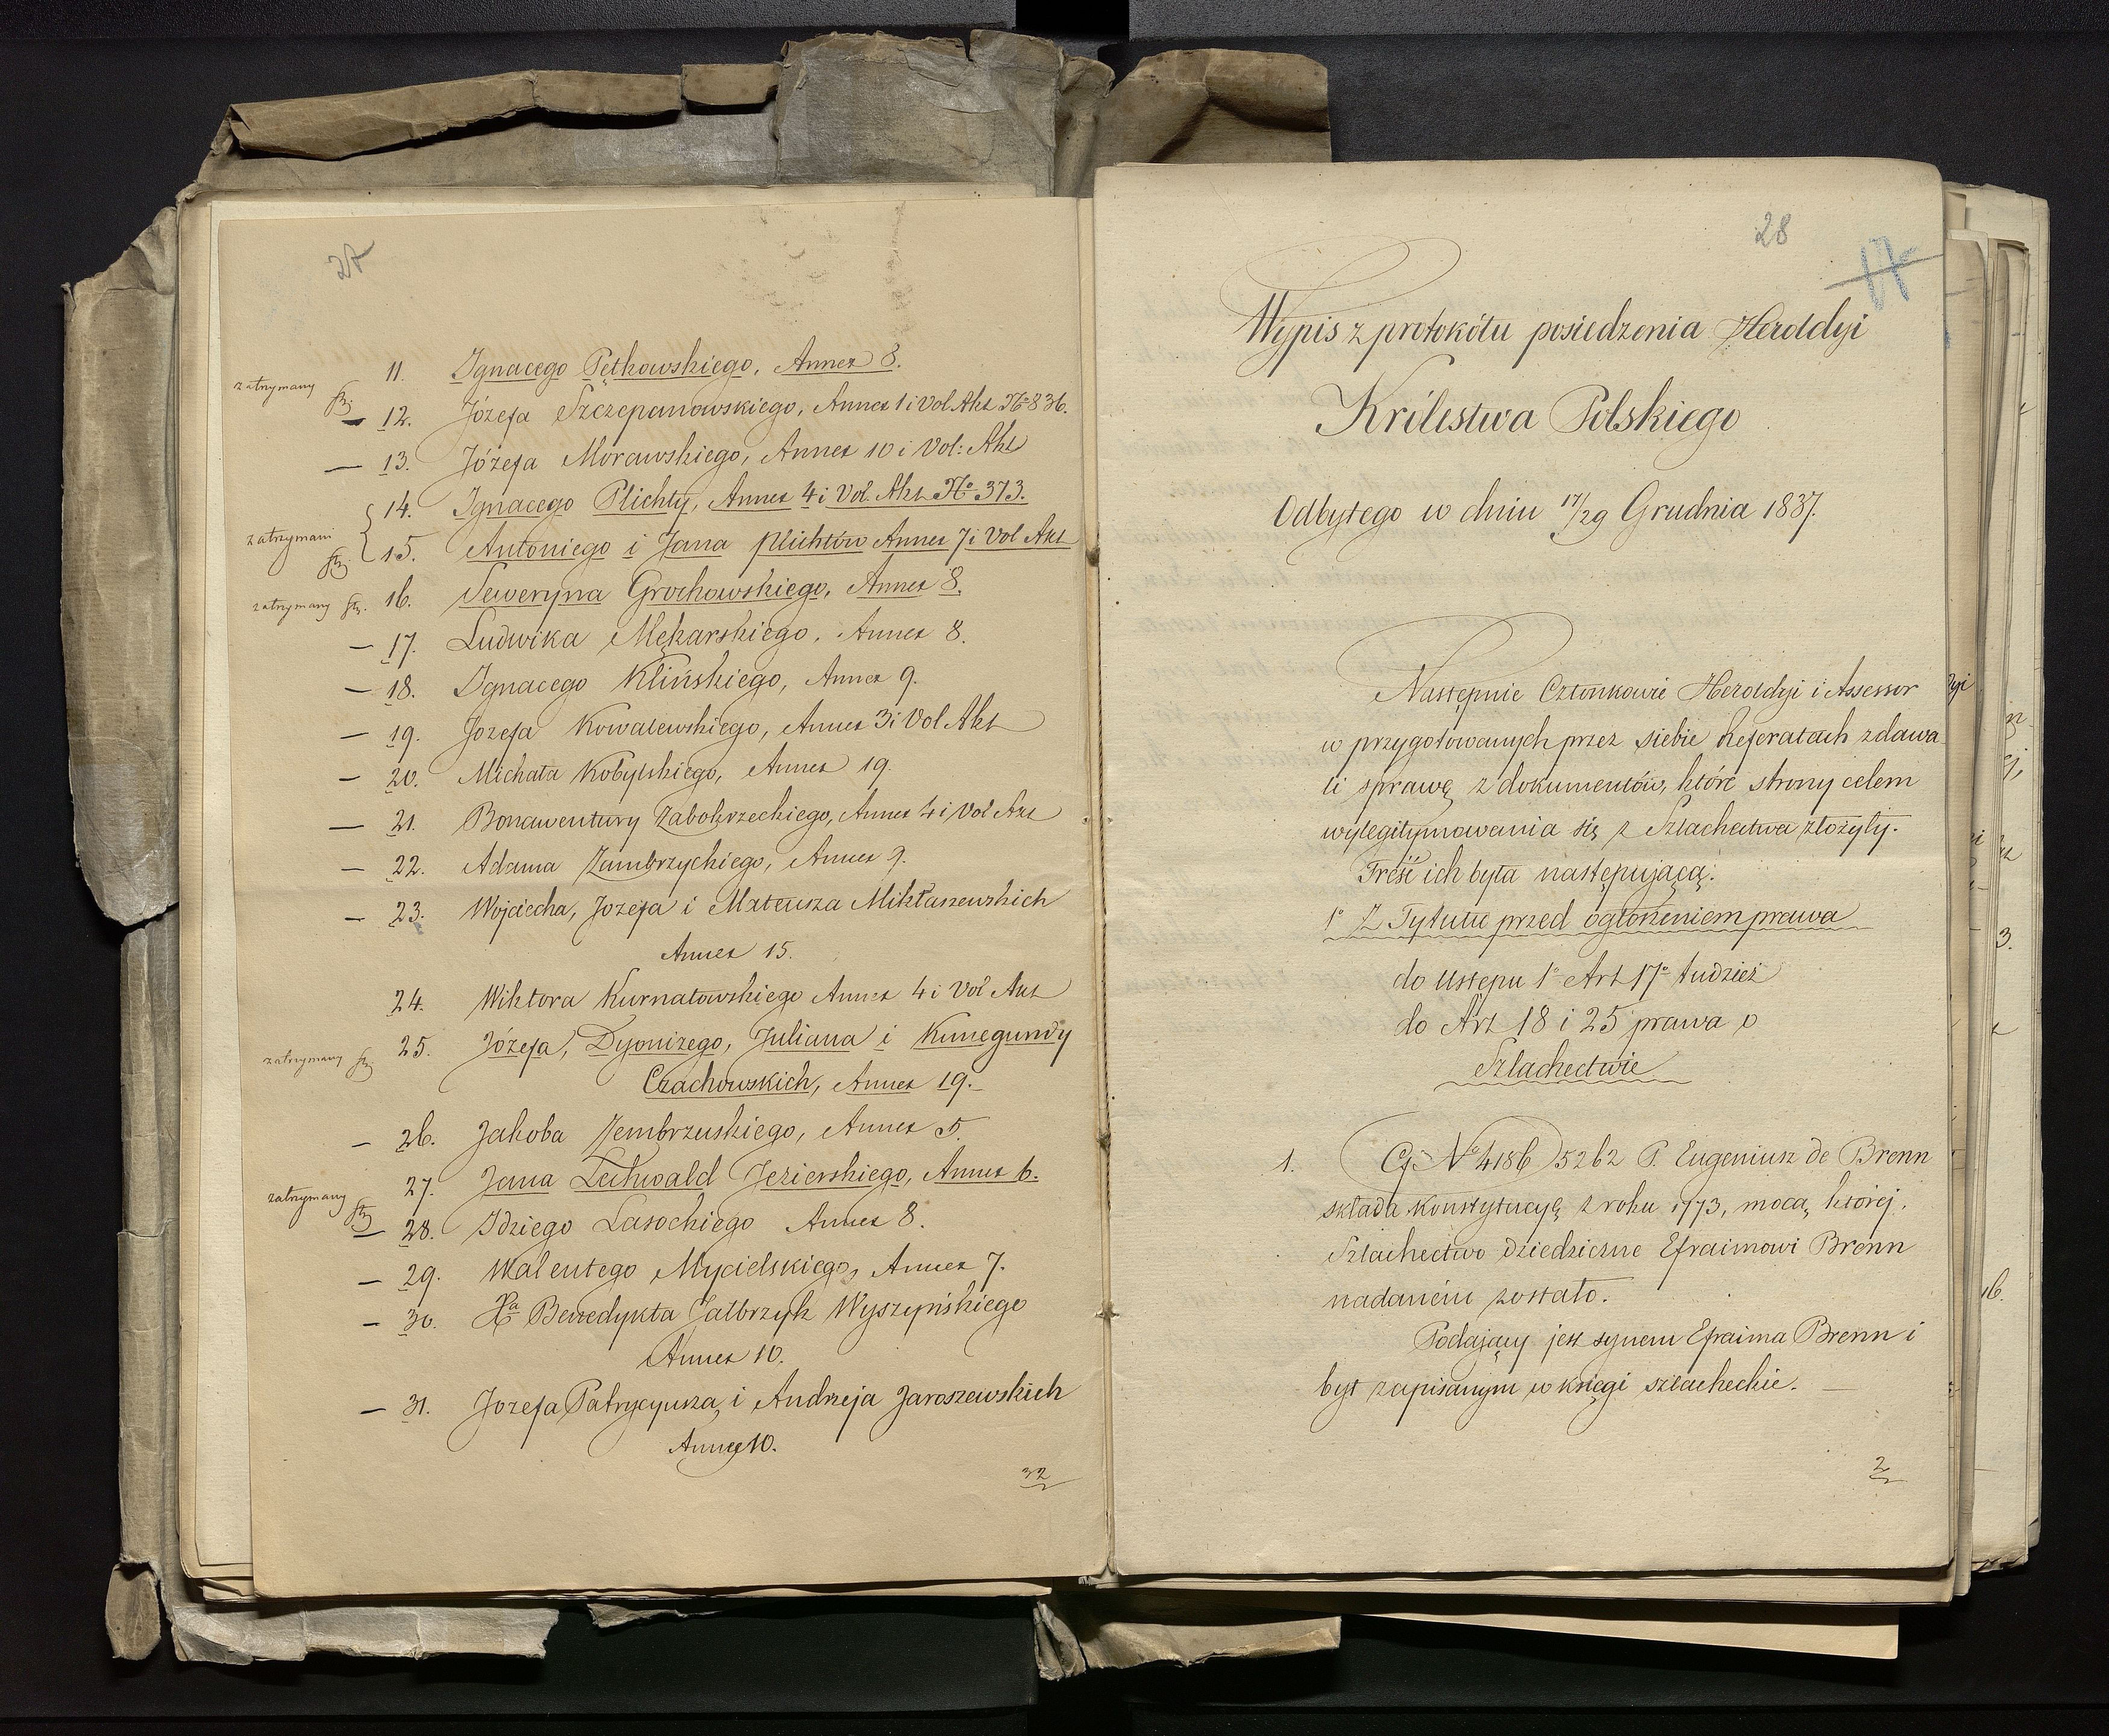 27
11. Ignacego Pętkowskiego, Annex 8.
zatrzymany
— 12. Józefa Szczepanowskiego, Annex 1 i Vol. Akt No 836.
— 13. Józefa Morawskiego, Annex 10 i Vol: Akt
14. Ignacego Plichty, Annex 4 i Vol. Akt No 373.
zatrzymani
15. Antoniego i Jana Plichtów Annex 7 i Vol Akt
zatrzymany 16. Seweryna Grochowskiego, Annex 8.
— 17. Ludwika Mękarskiego, Annex 8.
— 18. Ignacego Klińskiego, Annex 9.
— 19. Jozefa Kowalewskiego, Annex 3 i Vol Akt
— 20. Michała Kobylskiego, Annex 19.
— 21. Bonawentury Zabokrzeckiego, Annex 4 i Vol Akt
— 22. Adama Zambrzyckiego, Annex 9.
— 23. Wojciecha, Jozefa i Mateusza Mikłaszewskich
Annex 15.
24. Wiktora Kurnatowskiego Annex 4 i Vol Akt
25. Józefa, Dyonizego, Juliana i Kunegundy
zatrzymany
Czachowskich, Annex 19.
— 26. Jakoba Zembrzuskiego, Annex 5.
27. Jana Lechwald Jezierskiego, Annex 6.
zatrzymany
— 28. Idziego Lasockiego Annex 8.
— 29. Walentego Mycielskiego, Annex 7.
— 30. Xa Benedykta Jałbrzyk Wyszyńskiego
Annex 10.
— 31. Jozefa Patrycyusza, i Andrzeja Jaroszewskich
Annex 10.
32
28
17
Wypis z protokółu posiedzenia Heroldyi
Królestwa Polskiego
Odbytego w dniu 17/29 Grudnia 1837.
Następnie Członkowie Heroldyi i Assessor
w przygotowanych przez siebie Referatach zdawa
li sprawę z dokumentów, które strony celem
wylegitymowania się z Szlachectwa złożyły.
Treść ich była następująca:
1o Z Tytułu przed ogłoszeniem prawa
do Ustępu 1o Art 17o tudzież
do Art 18 i 25 prawa o
Szlachectwie
1. No 4186/5262 P. Eugeniusz de Brenn
składa Konstytucyę z roku 1773, mocą której
Szlachectwo dziedziczne Efraimowi Brenn
nadanem zostało.
Podający jest synem Efraima Brenn i
był zapisanym w księgi szlacheckie. —
2